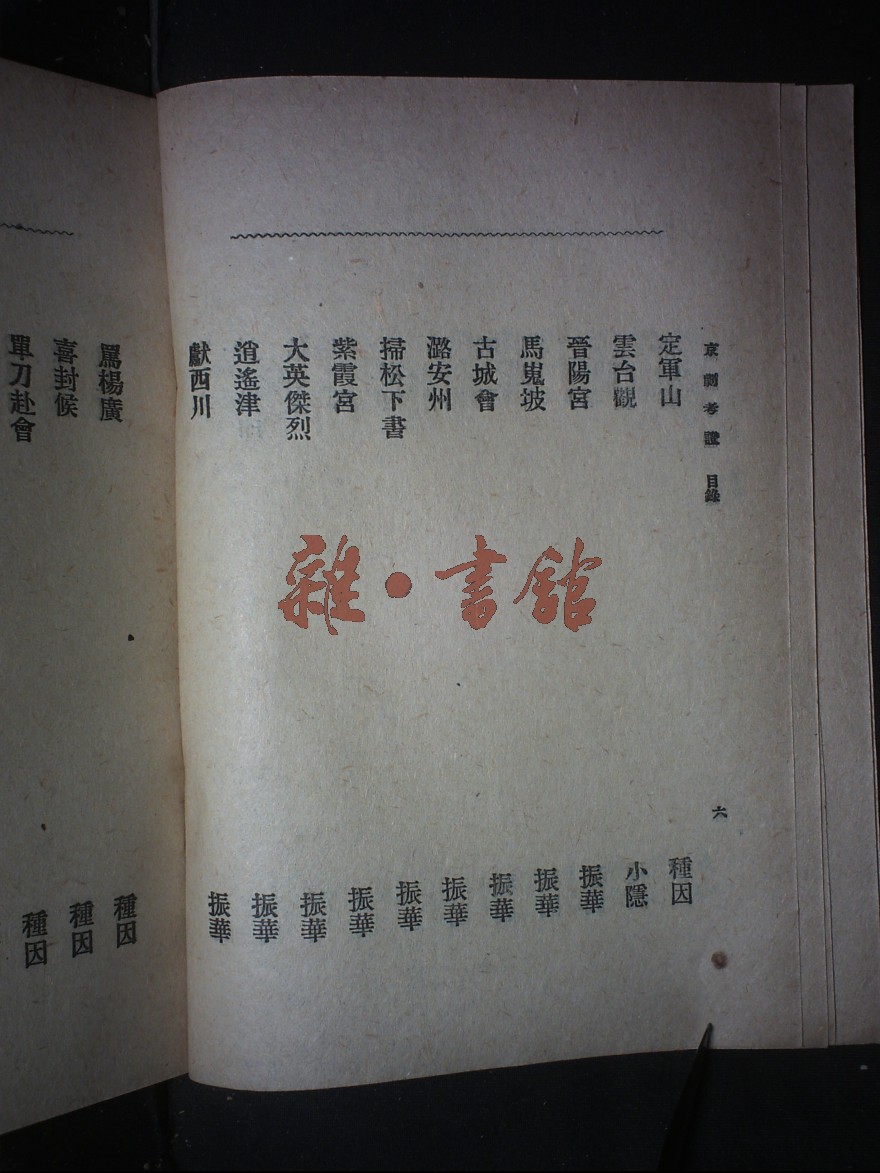 京劇考證 目錄 六
定軍山 種因
雲台觀 小隱
晉陽宮 振華
馬嵬坡 振華
古城會 振華
潞安州 振華
掃松下書 振華
紫霞宮 振華
大英傑烈 振華
逍遙津 振華
獻西川 振華
罵楊廣 種因
喜封候 種因
單刀赴會 種因
雜·書館